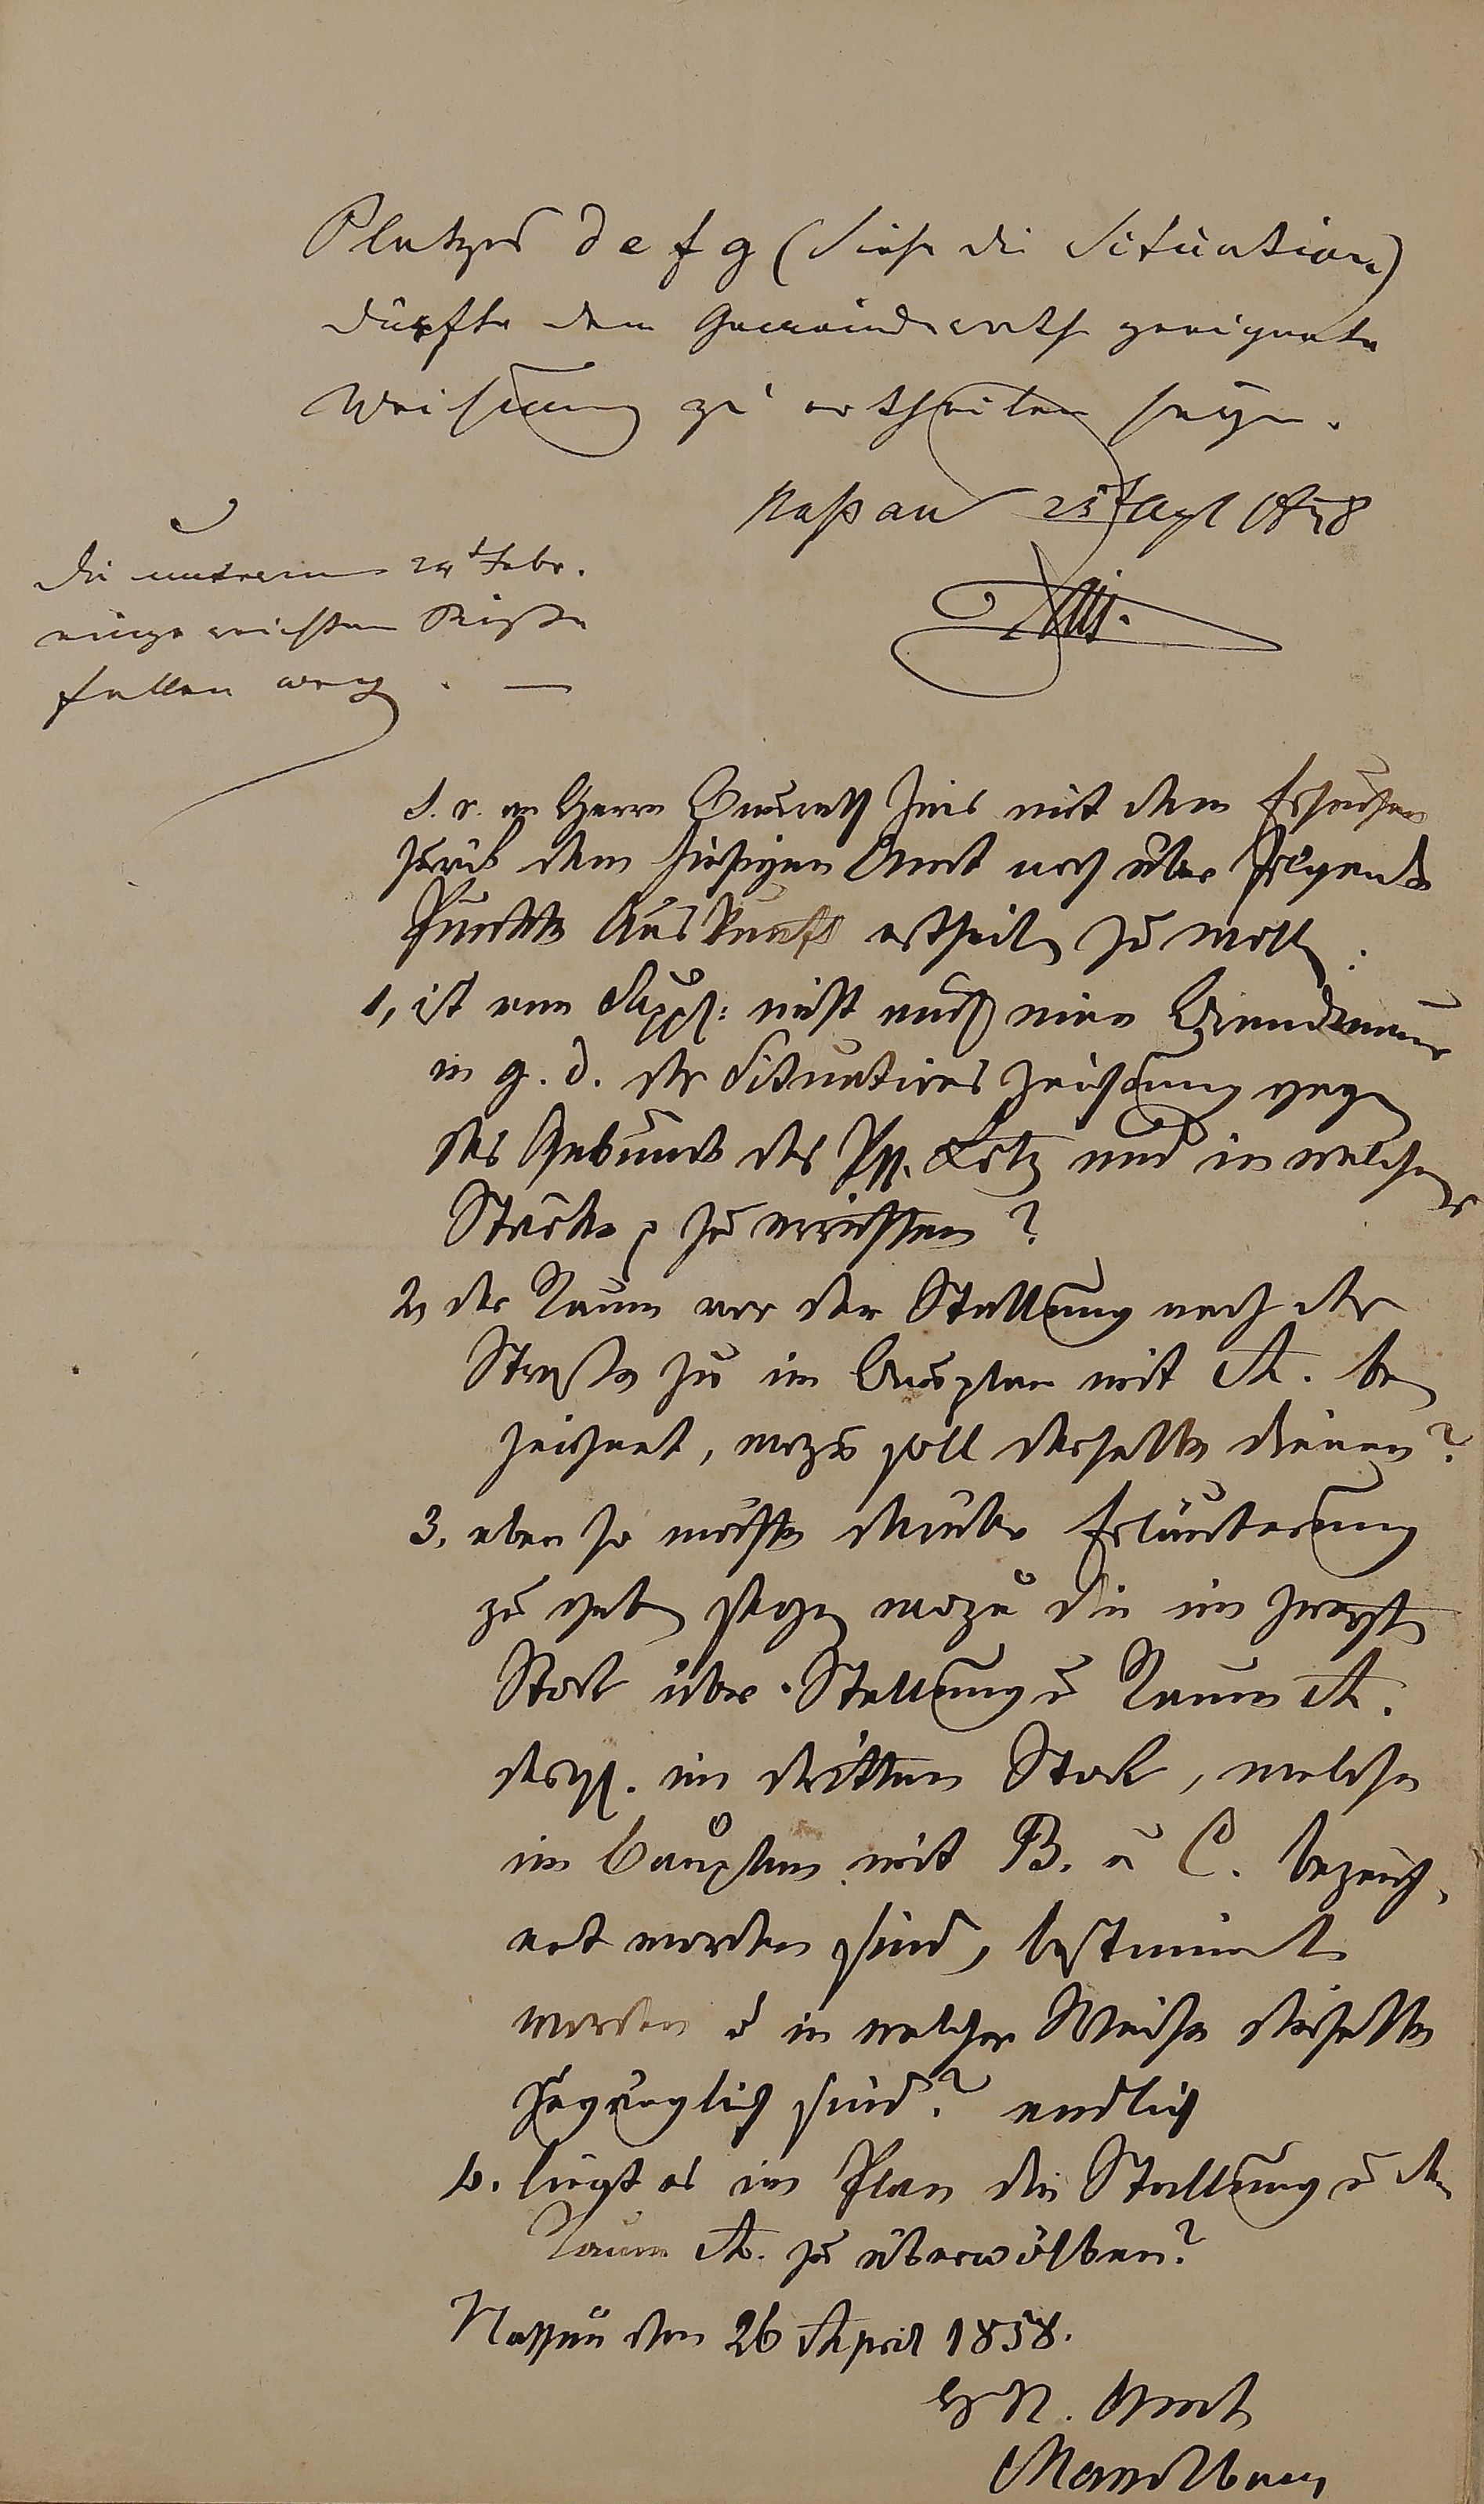 Platzes d e f g (siehe die Situation)
dürfte dem Gemeinderath geeignete
Weisung zu ertheilen seyn.
Nassau 25t Apl 1858
Die unterm 24t Febr.
eingereichten Riße
fallen weg. —
S. r. an Herrn Baurath Hies mit dem Ersuchen
zurück dem hiesigen Amt noch über folgende
Punkte Auskunft ertheilen zu wollen:
1, ist von Suppl: nicht auch eine Brandmauer
in g. d. der Situations Zeichnung gegen
das Gebäude des Ph. Lotz und in welcher
Stärke p zu errichten?
2, der Raum vor der Stallung nach der
Straße zu im Bauplan mit A. be
zeichnet, wozu soll derselbe dienen?
3. eben so möchte darüber Erläuterung
zu geben seyn wozu die im zweiten
Stock über Stallung u Raum A.
desgl. im dritten Stock, welche
im Bauplan mit B. u C. bezeich,
net worden sind, bestimmt
worden u in welcher Weise dieselben
zugänglich sind? endlich
4. liegt es im Plan die Stallung u den
Raum A. zu überwölben?
Nassau den 26 April 1858.
H. N. Amt